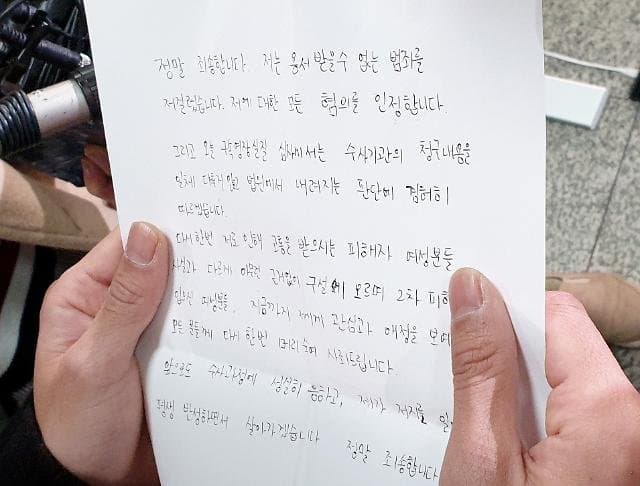 정말 죄송합니다. 저는 용서 받을수 없는 범죄를
저질렀습니다. 저에 대한 모든 혐의를 인정합니다.
그리고 오늘 구속영장실질 심사에서는 수사기관의 청구내용을
일체 다투지 않고 법원에서 내려지는 판단에 겸허히
따르겠습니다.
다시한번 저로 인해 고통을 받으시는 피해자 여성분들
사실과 다르게 아무런 근거없이 구설에 오르며 2차 피해
입으신 여성분들, 지금까지 저에게 관심과 애정을 보여
모든 분들께 다시 한번 머리숙여 사죄드립니다.
앞으로도 수사과정에 성실히 응하고, 제가 저지른 일
평생 반성하면서 살아가겠습니다 정말 죄송합니다